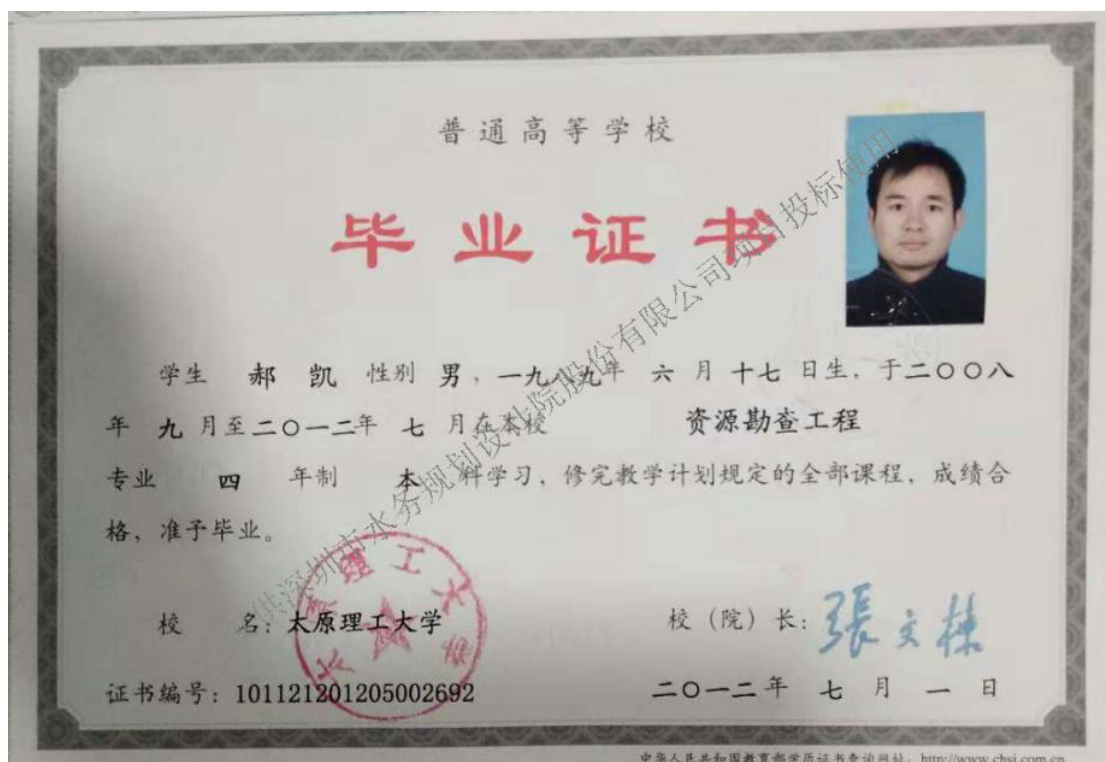 普通高等学校
毕业证书
学生 郝凯 性别 男，一九八九年 六 月 十七 日生，于二〇〇八
年 九 月至二〇一二年 七 月在本校 资源勘查工程
专业 四 年制 本 科学习，修完教学计划规定的全部课程，成绩合
格，准予毕业。
校 名：太原理工大学
校（院）长：張文棟
证书编号：101121201205002692
二〇一二年 七 月 一 日
太原理工大学
供深圳市水务规划设计院股份有限公司项目投标使用
中华人民共和国教育部学历证书查询网址：http://www.chsi.com.cn